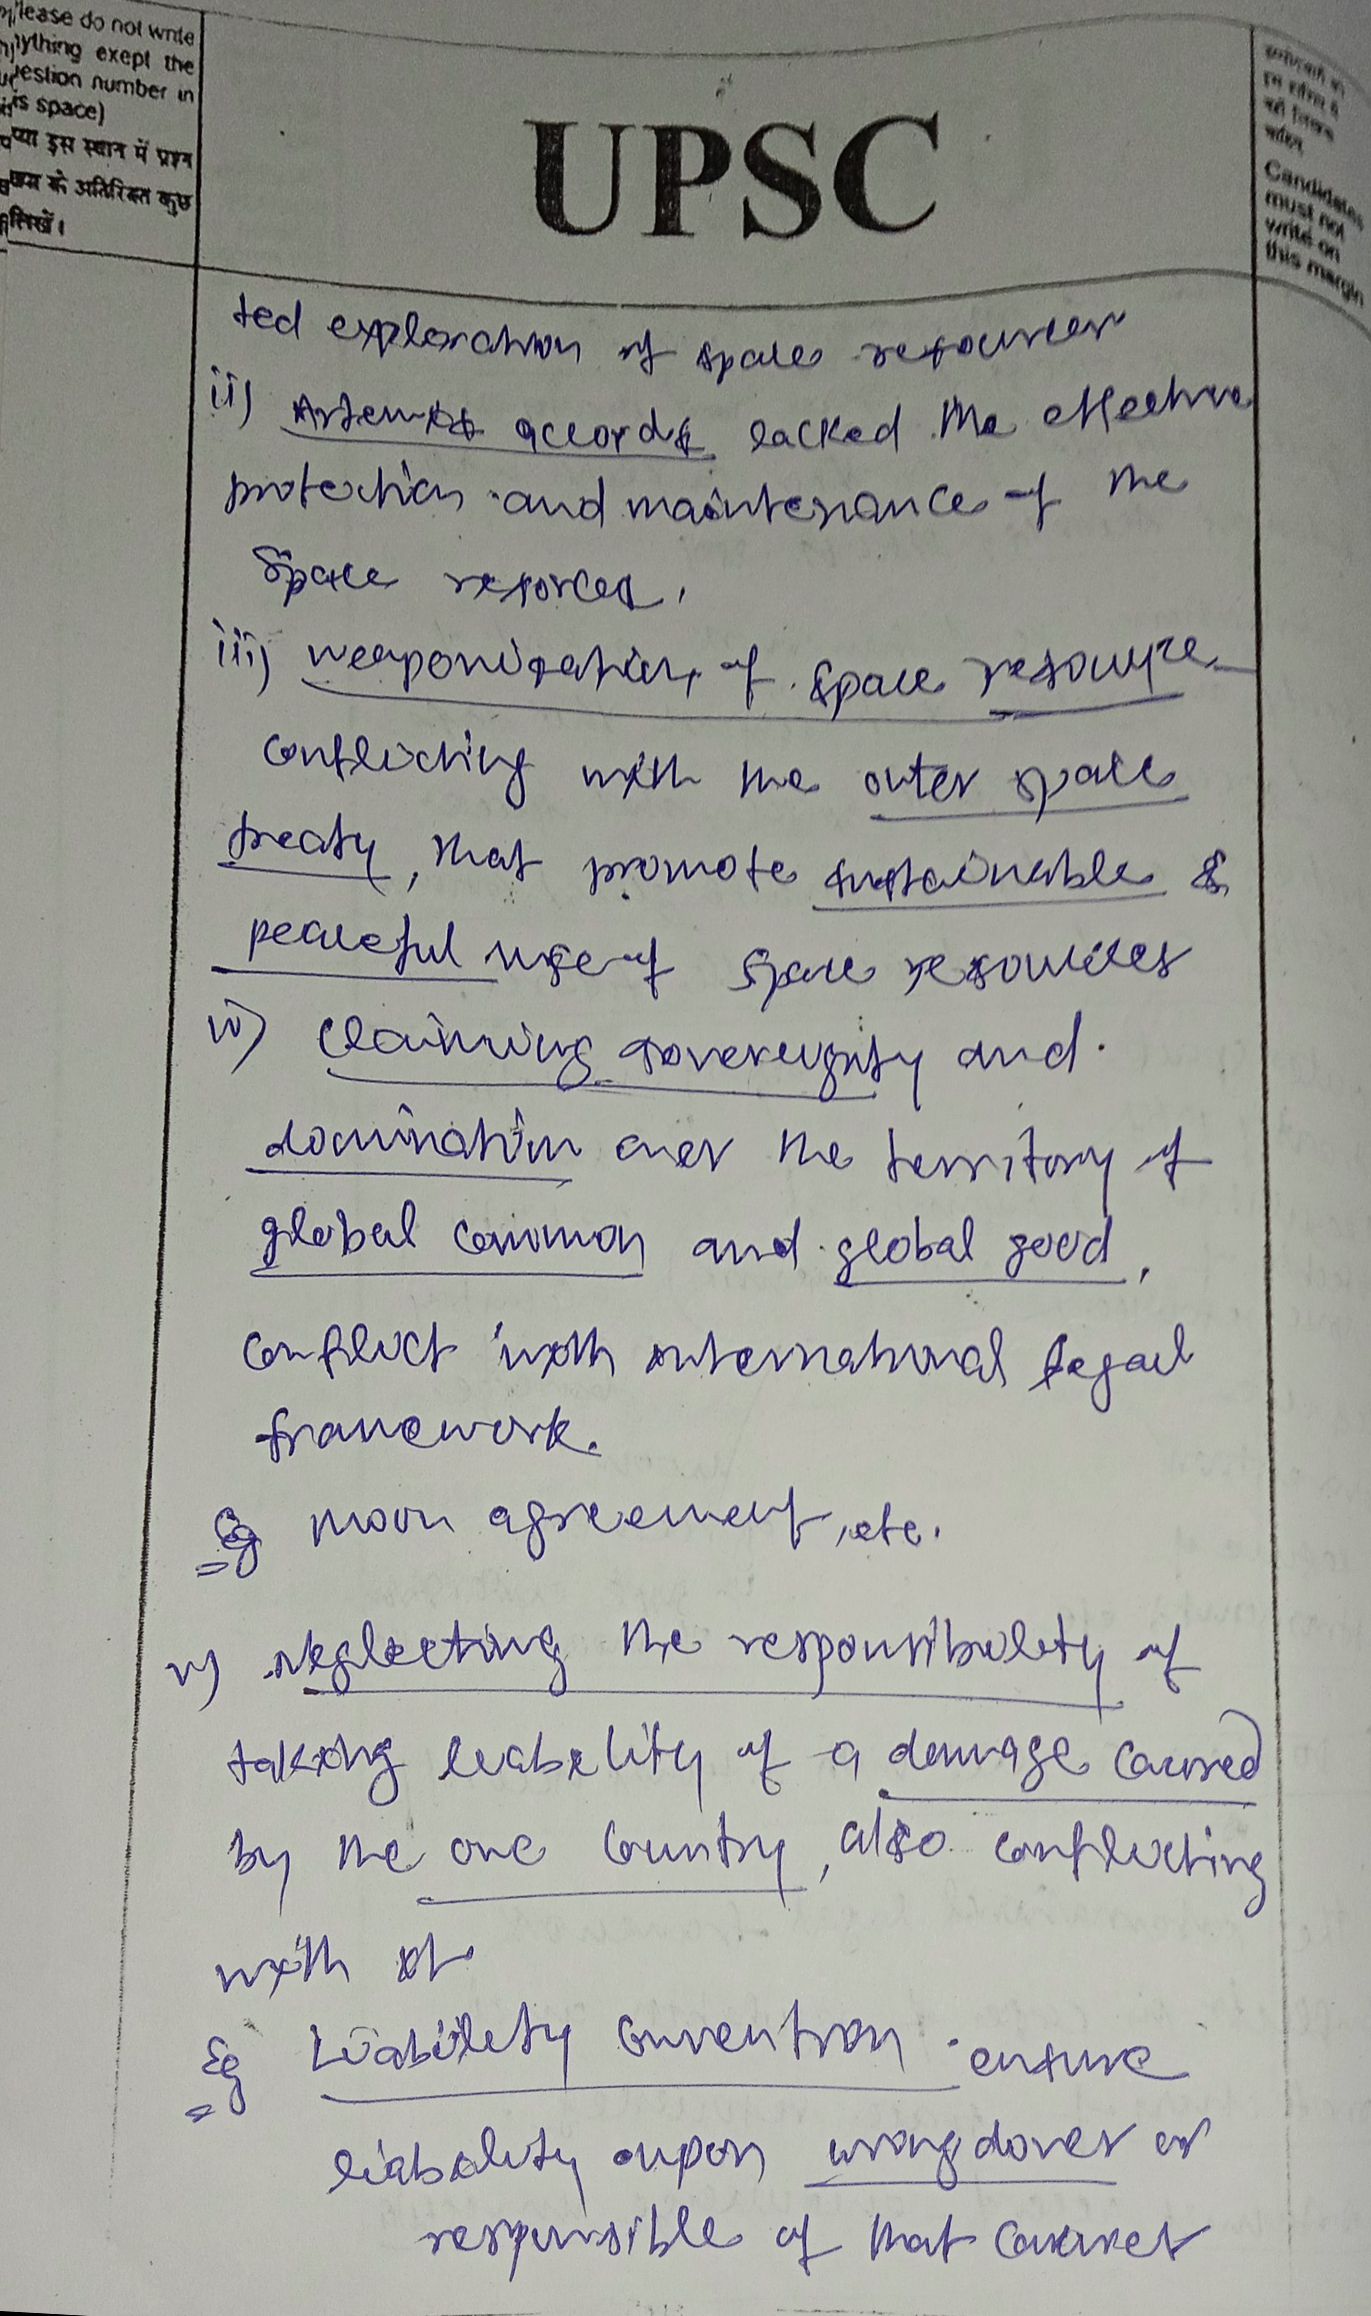 Please do not write
anything exept the
question number in
this space)
इस स्थान में प्रश्न
के अतिरिक्त कुछ
लिखें।
UPSC
Candidates
must not
write on
this margin
ted exploration of space resources
ii) Artemis accords lacked the effective
protection and maintenance of the
Space resorces.
iii) weaponisation of space resource
conflicting with the outer space
treaty, that promote sustainable &
peaceful use of space resources
iv) claiming sovereignty and
domination over the territory of
global common and global good,
conflict with international legal
framework.
Eg moon agreement, etc.
v) neglecting the responsibility of
taking liability of a damage caused
by the one country, also conflicting
with it
Eg Liability convention ensure
liability upon wrongdoer or
responsible of that